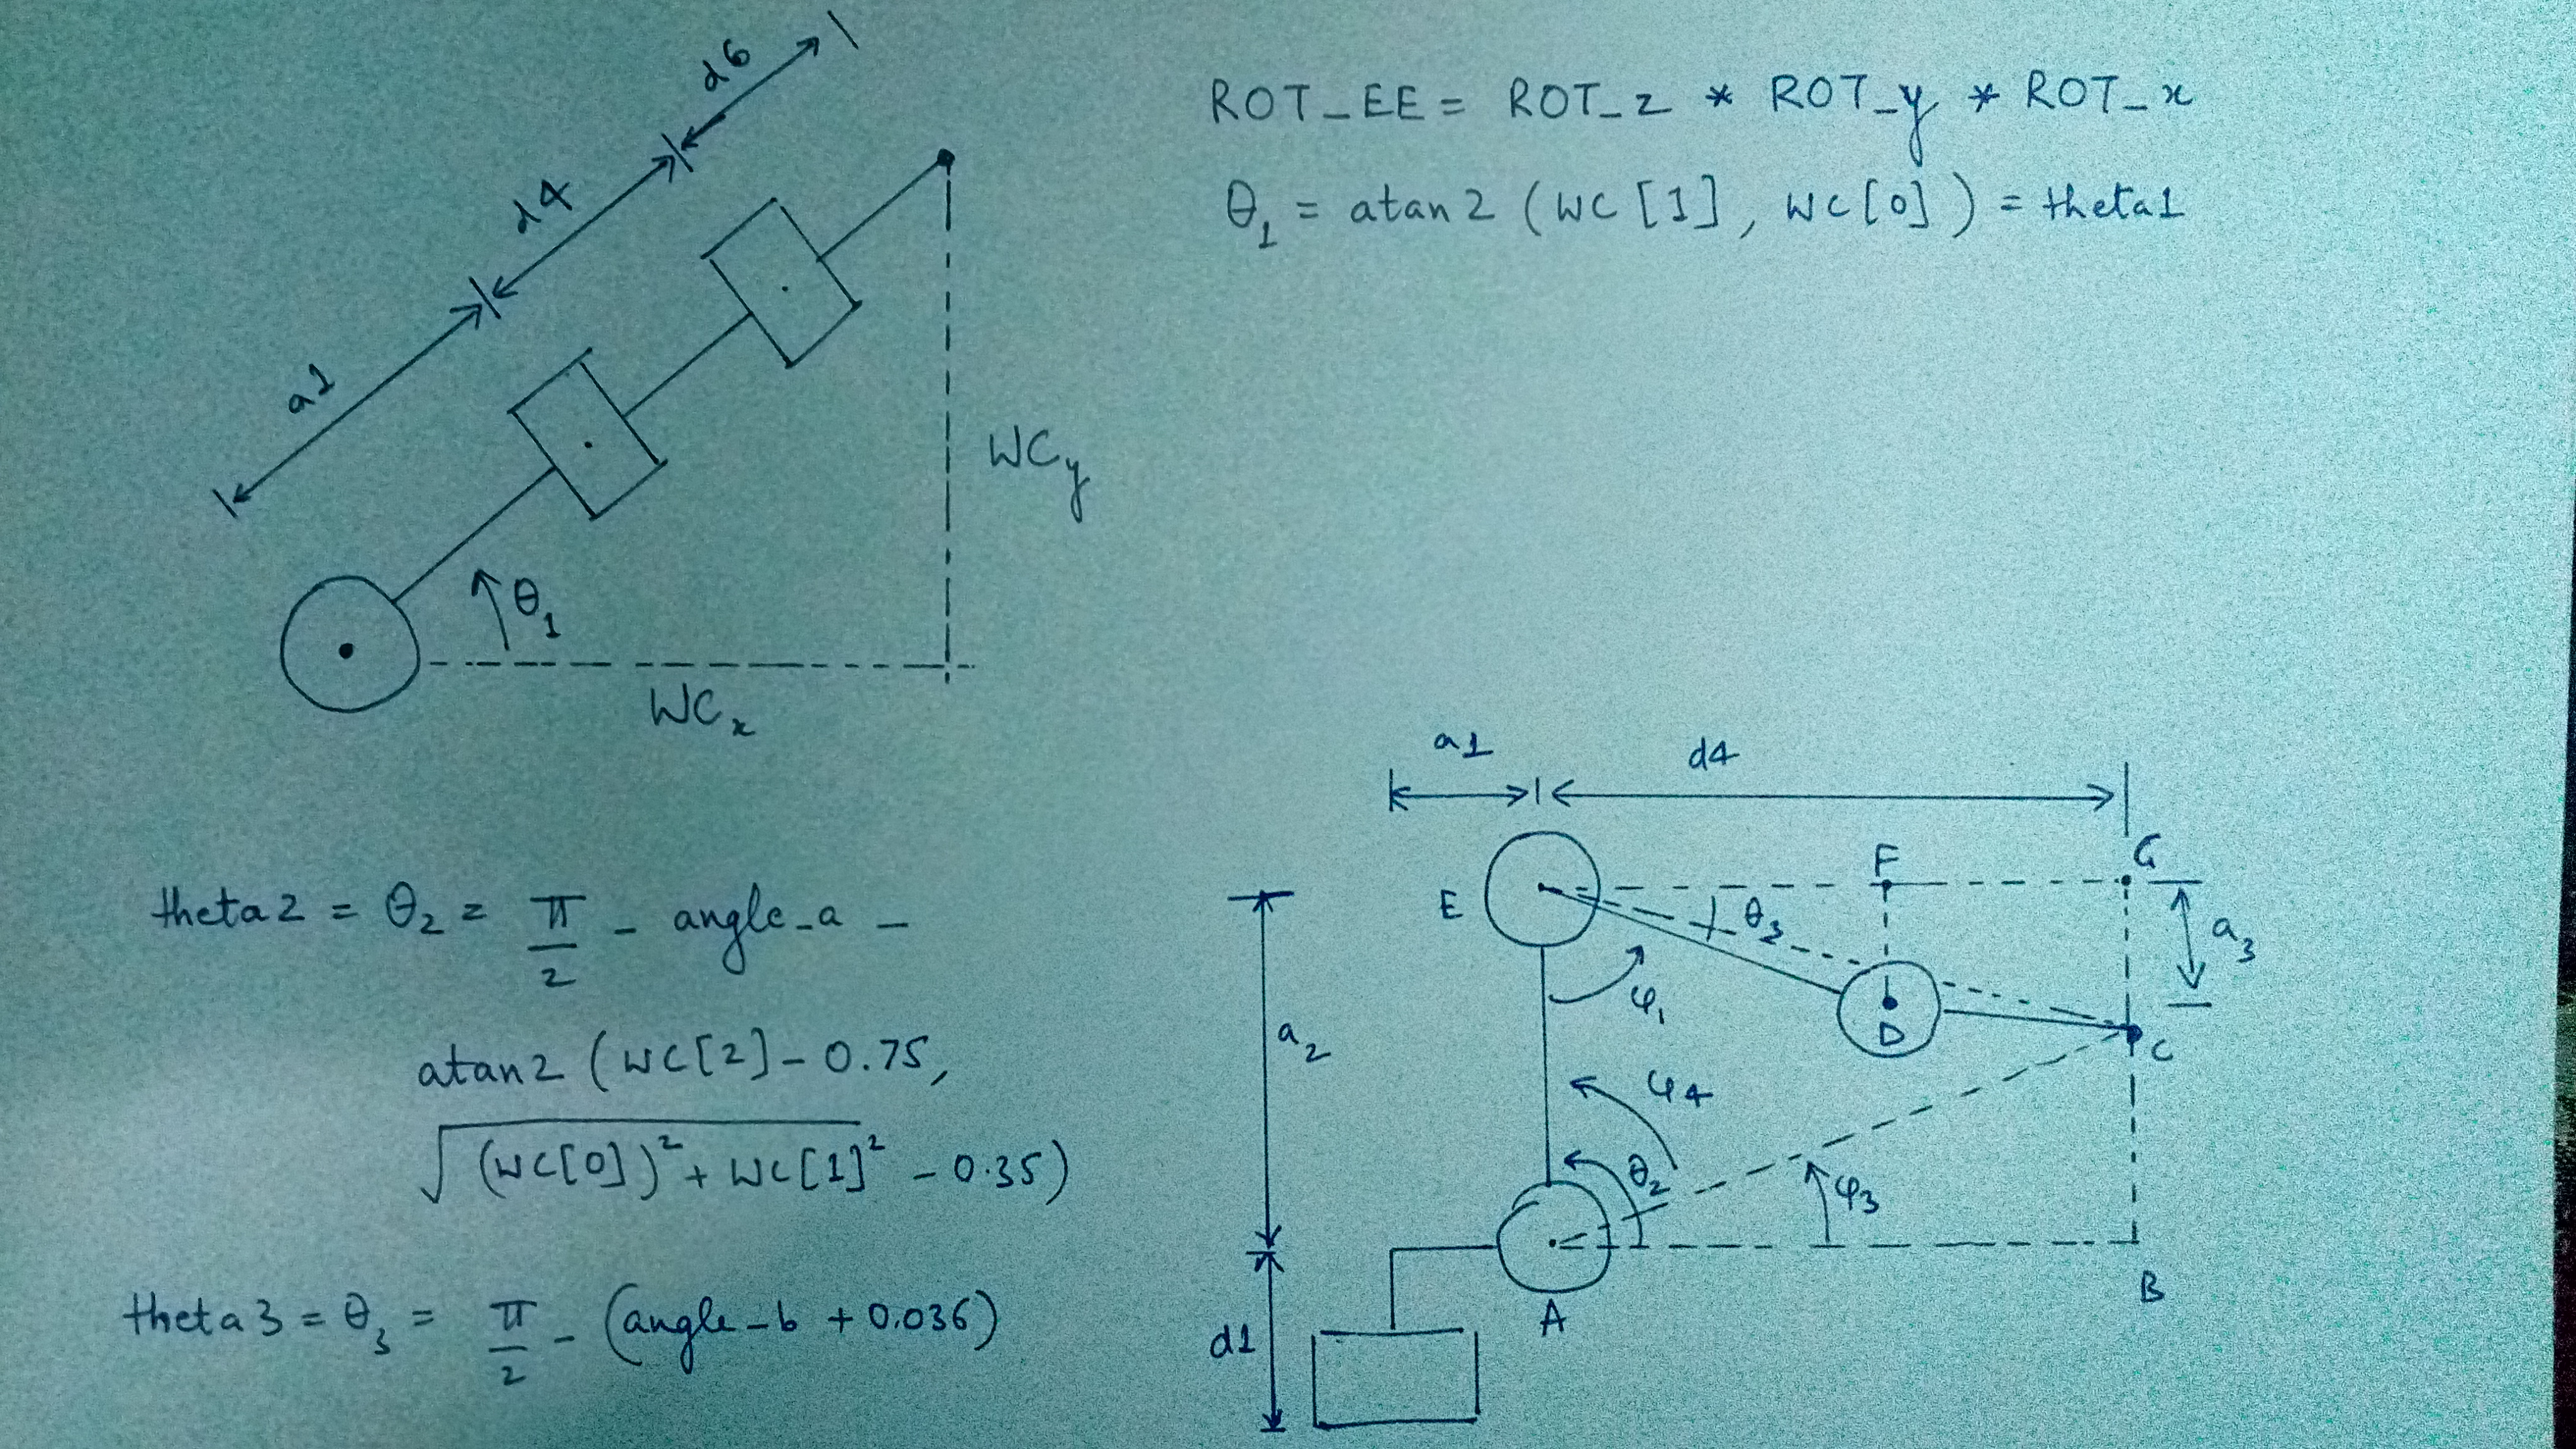 ROT_EE = ROT_z * ROT_y * ROT_x
θ₁ = atan2 (WC[1], WC[0]) = theta1
d6
d4
a1
θ₁
WCy
WCₓ
theta2 = θ₂ = π/2 - angle_a -
atan2 (WC[2] - 0.75,
√(WC[0])² + WC[1]² - 0.35)
theta3 = θ₃ = π/2 - (angle_b + 0.036)
a1
d4
E
F
G
θ₃
a₃
φ₁
D
C
a₂
φ4
θ₂
φ3
A
B
d1